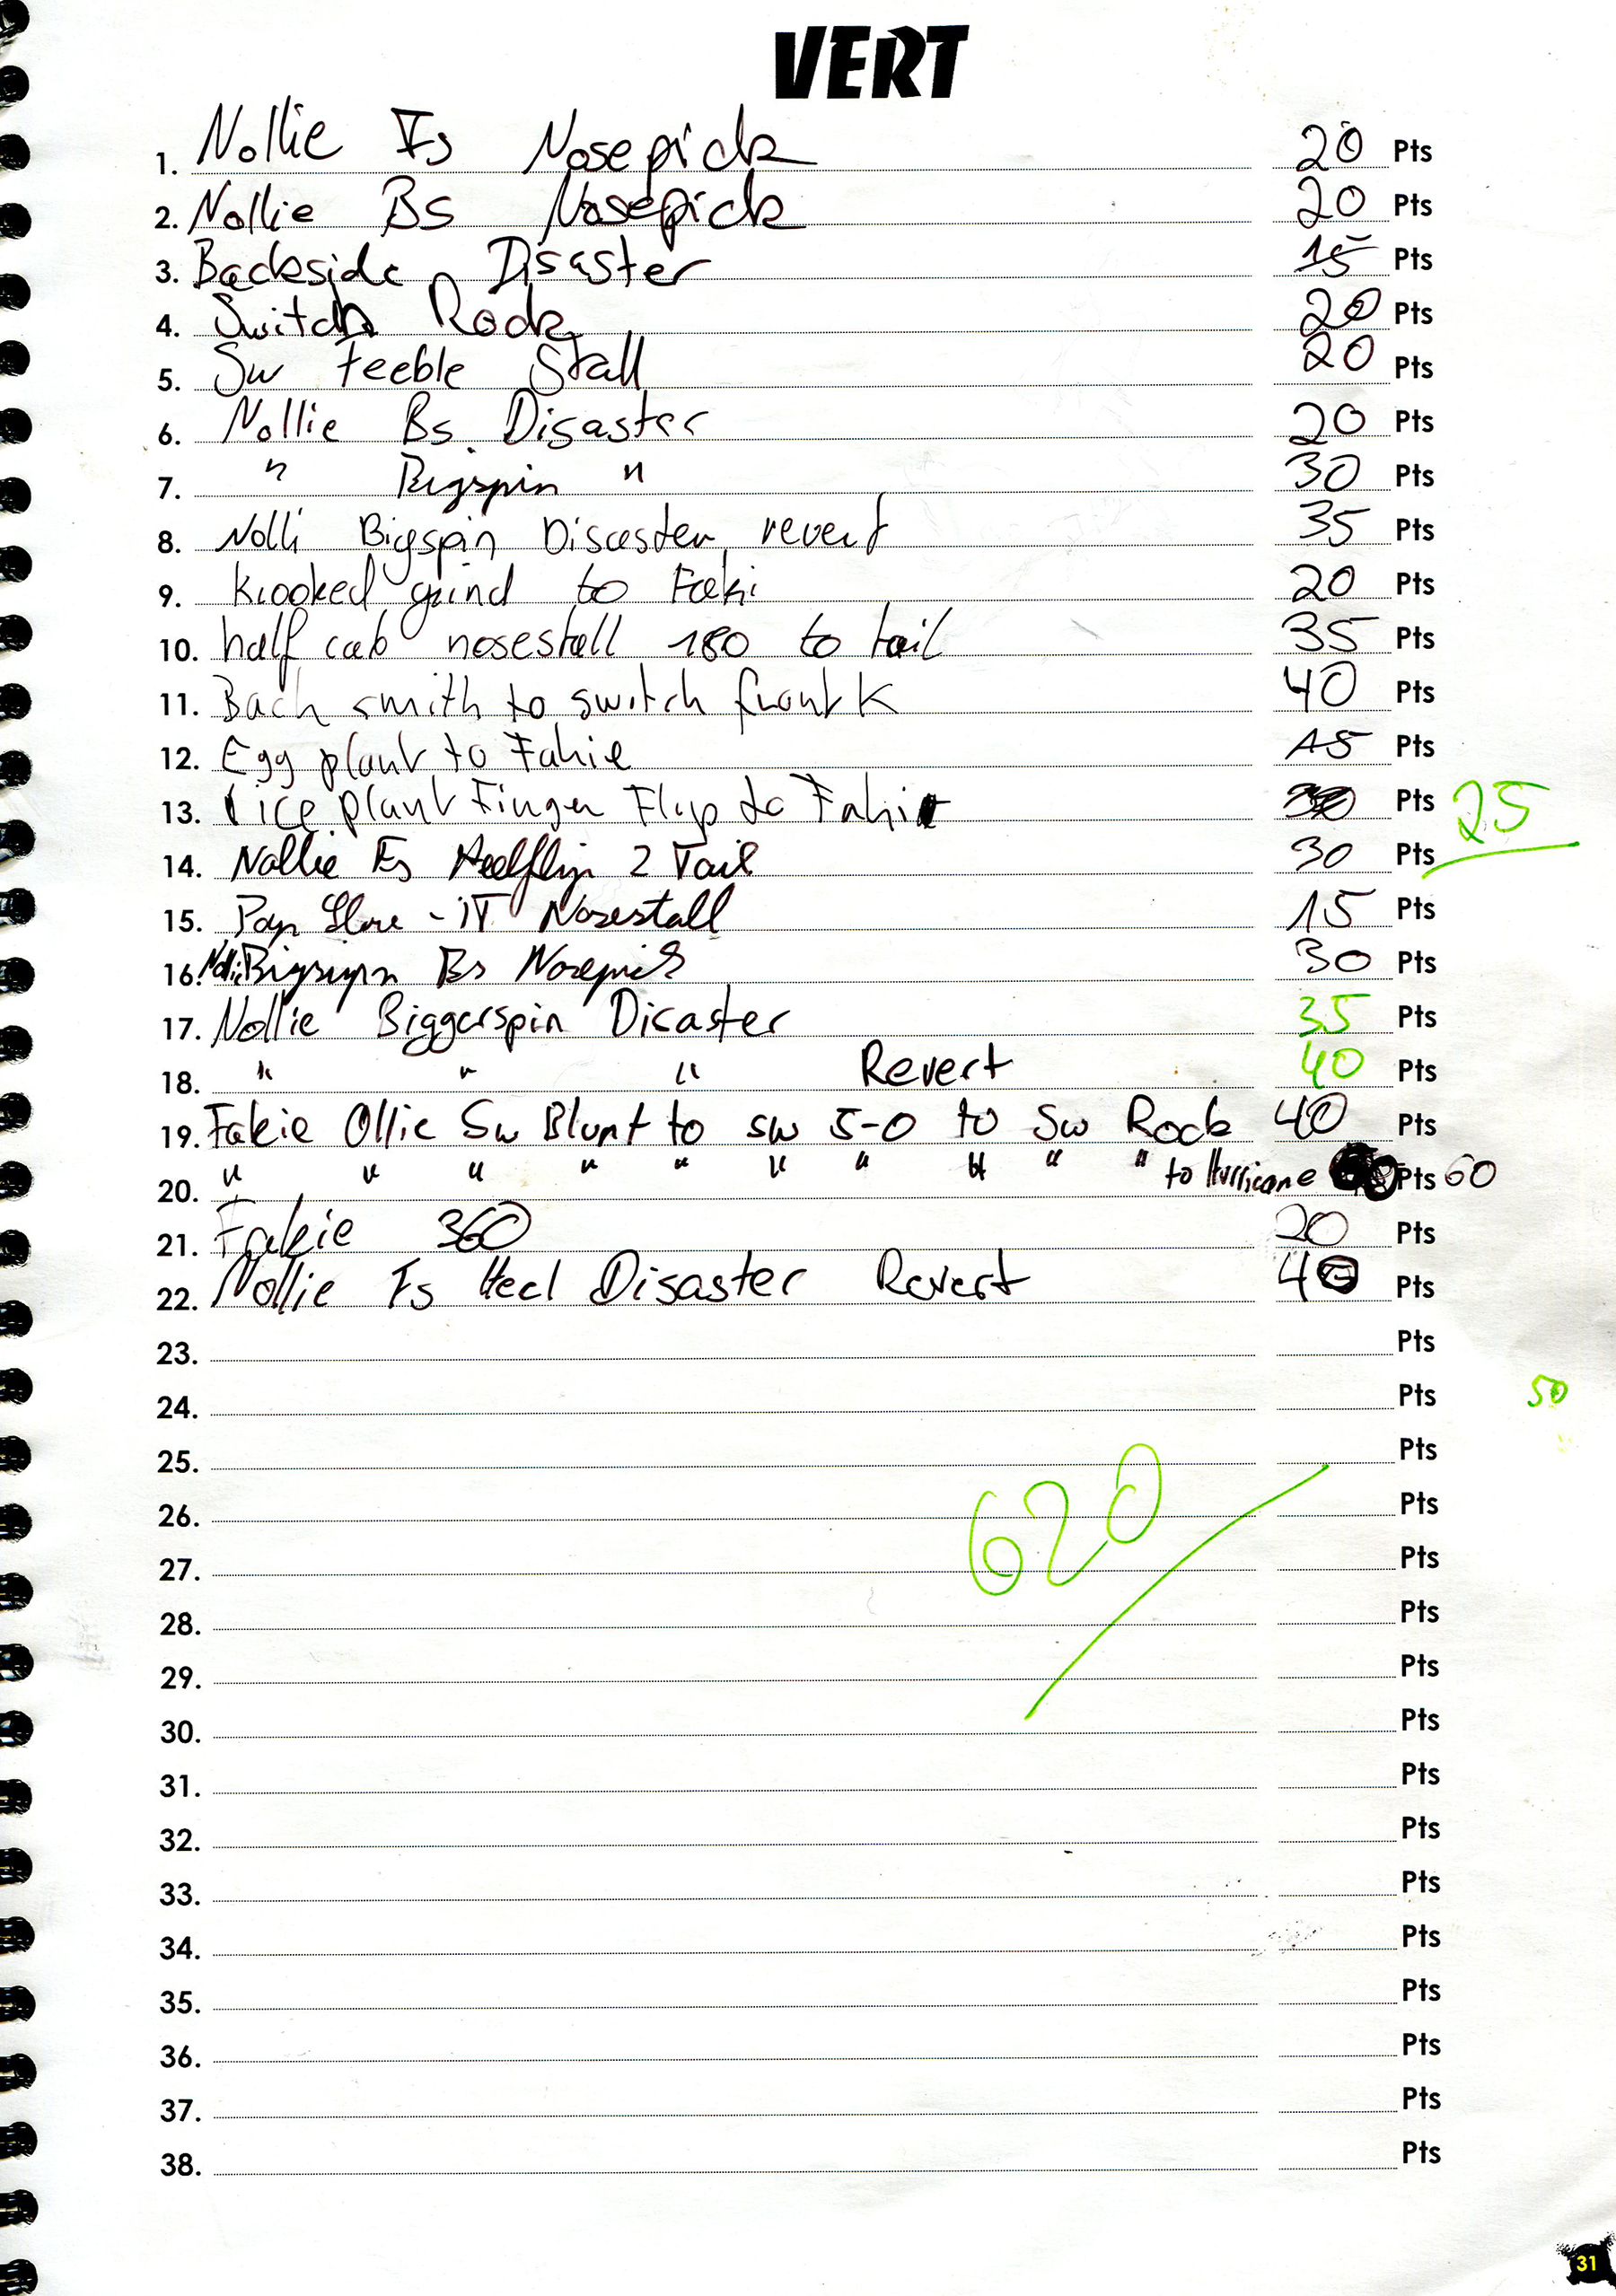 VERT
1. Nollie Fs Nosepick 20 Pts
2. Nollie Bs Nosepick 20 Pts
3. Backside Disaster 15 Pts
4. Switch Rock 20 Pts
5. Sw feeble Stall 20 Pts
6. Nollie Bs Disaster 20 Pts
7. " Bigspin " 30 Pts
8. Nolli Bigspin Disaster revert 35 Pts
9. Krooked grind to Faki 20 Pts
10. half cab nosestall 180 to tail 35 Pts
11. Back smith to switch front K 40 Pts
12. Egg plant to Fakie 15 Pts
13. plant Finger Flip to Fakie Pts 25
14. Nollie Fs Heelflip 2 Tail 30 Pts
15. Pop Shov-iT Nosestall 15 Pts
16. Nolli Bigspin Bs Nosepick 30 Pts
17. Nollie Biggerspin Disaster 35 Pts
18. " " " Revert 40 Pts
19. Fakie Ollie Sw Blunt to sw 5-0 to Sw Rock 40 Pts
20. " " " " " " " " " " to Hurricane Pts 60
21. Fakie 360 20 Pts
22. Nollie Fs Heel Disaster Revert 40 Pts
23. Pts
24. Pts 50
25. Pts
26. 620 Pts
27. Pts
28. Pts
29. Pts
30. Pts
31. Pts
32. Pts
33. Pts
34. Pts
35. Pts
36. Pts
37. Pts
38. Pts
31